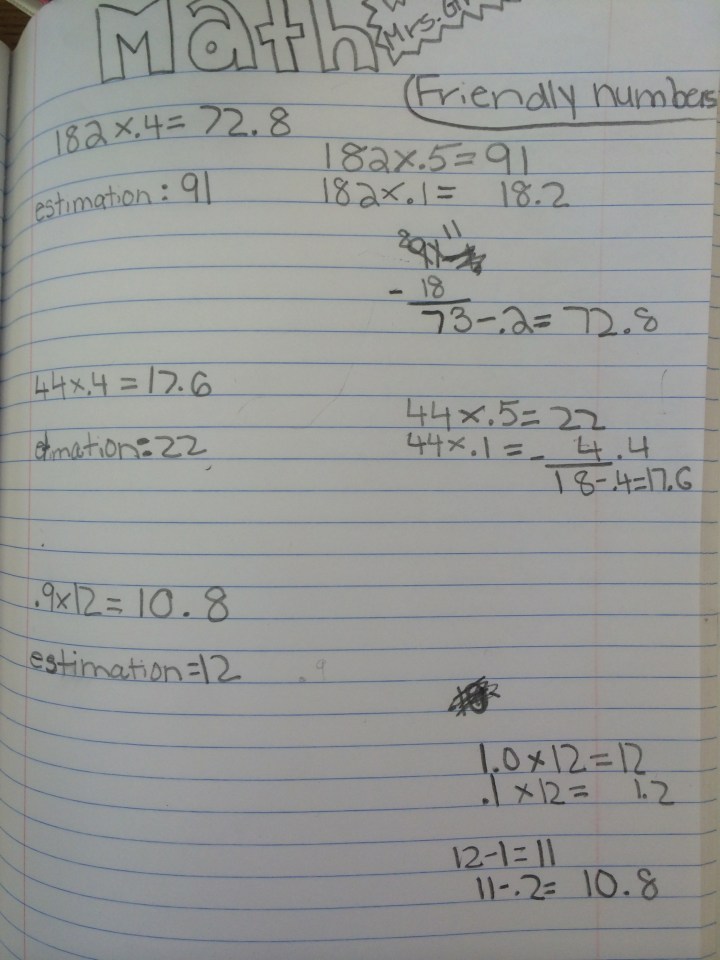 Math
Mrs. G
(Friendly numbers
182×.4= 72.8
182×.5=91
estimation: 91
182×.1= 18.2
11
- 18
73-.2= 72.8
44×.4=17.6
44×.5=22
44×.1=- 4.4
18-.4=17.6
.9×12=10.8
estimation=12
.9
1.0×12=12
.1×12= 1.2
12-1=11
11-.2= 10.8